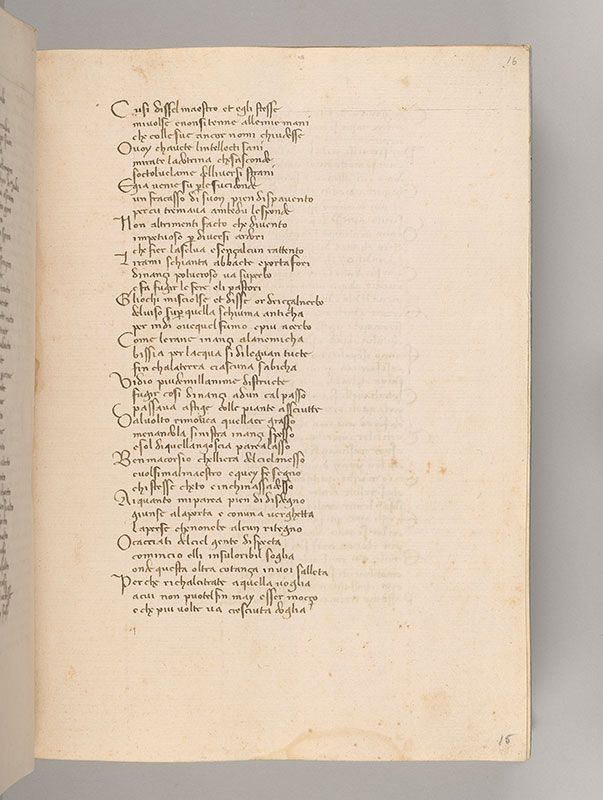 16
Cusi dissel maestro et egli stesse
mivolse enonsitenne allemie mani
che colle sue ancor nomi chiudesse
Ovoy chavete lintellecti sani
mirate ladotrina chesasconde
socto veleme delli versi strani
Egia venie su per le sucide onde
un fracasso di suon pien dispavento
per cui tremava amtedu le sponde
Non altrimenti facto che divento
impetuoso per diversi ardori
che fier laselva esenzalcun rattento
Irrami schianta abbacte eportafori
dinanzi polveroso va superbo
e fa fugir le fere eli pastori
Gliochi misciolse et disse or drizzalnerbo
delviso super quella schiuma anticha
per indi ovequel fumo epiu acerbo
Come lerane inanzi alanemicha
bissia per lacqua si dileguan tucte
fin chalaterra ciascuna sabicha
Vidio piudemillanime distructe
fugir cosi dinanzi adun cal passo
passava astige colle piante assciutte
Dalvolto rimovea quellaer grasso
menandola sinistra inanzi spesso
esol diquellangoscia parealasso
Ben macorsio chelliera delcielmesso
evolsimalmaestro equey fe segno
chistesse cheto einchinassadesso
Ai quanto miparea pien di disdegno
giunse alaporta e conuna verghetta
laperse chenonebe alcun ritegno
Ocacciati delciel gente dispecta
comincio elli insuloribil soglia
onde questa oltracotanza invoi salleta
Perche richalcitrate aquella voglia
acui non puotelfin may esser mozzo
e che piu volte va cresciuta doglia
15